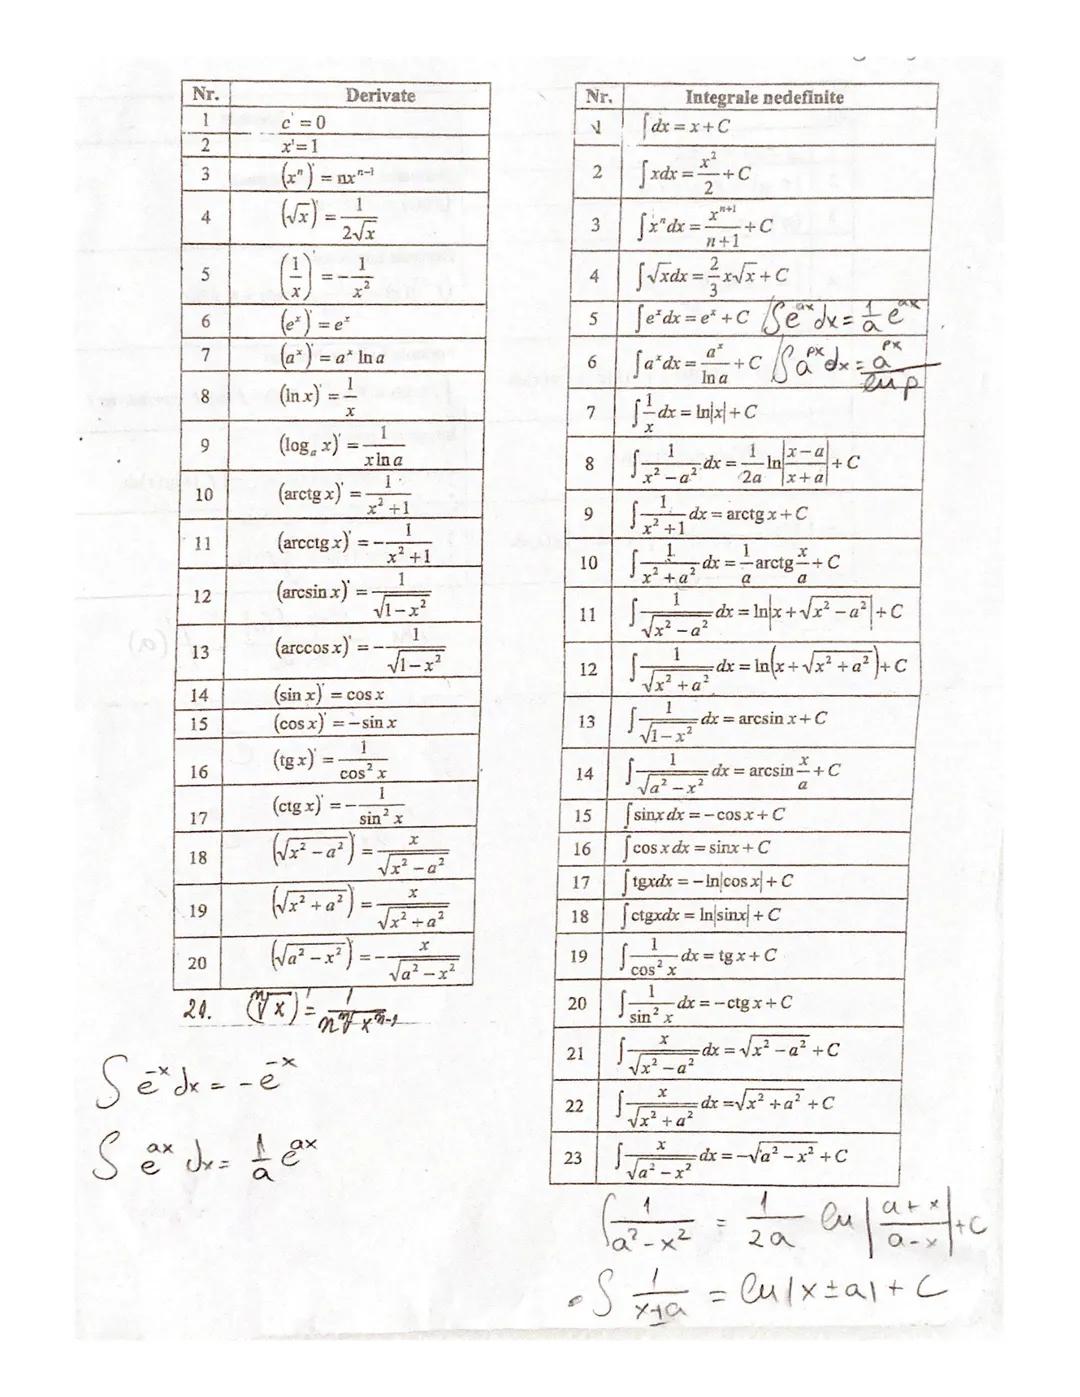 Nr. Derivate
1 c' = 0
2 x' = 1
3 (xⁿ)' = nxⁿ⁻¹
4 (√x)' = 1/(2√x)
5 (1/x)' = -1/x²
6 (eˣ)' = eˣ
7 (aˣ)' = aˣ ln a
8 (ln x)' = 1/x
9 (logₐ x)' = 1/(x ln a)
10 (arctg x)' = 1/(x² + 1)
11 (arcctg x)' = -1/(x² + 1)
12 (arcsin x)' = 1/√(1 - x²)
13 (arccos x)' = -1/√(1 - x²)
14 (sin x)' = cos x
15 (cos x)' = -sin x
16 (tg x)' = 1/cos² x
17 (ctg x)' = -1/sin² x
18 (√(x² - a²))' = x/√(x² - a²)
19 (√(x² + a²))' = x/√(x² + a²)
20 (√(a² - x²))' = -x/√(a² - x²)
21. (ⁿ√x)' = 1/(n ⁿ√xⁿ⁻¹)
∫e⁻ˣ dx = -e⁻ˣ
∫eᵃˣ dx = 1/a eᵃˣ
Nr. Integrale nedefinite
1 ∫dx = x + C
2 ∫xdx = x²/2 + C
3 ∫xⁿdx = xⁿ⁺¹/(n+1) + C
4 ∫√xdx = 2/3 x√x + C
5 ∫eˣdx = eˣ + C ∫eᵃˣ dx = 1/a eᵃˣ
6 ∫aˣdx = aˣ/ln a + C ∫aᵖˣ dx = aᵖˣ/ln p
7 ∫1/x dx = ln|x| + C
8 ∫1/(x² - a²) dx = 1/2a ln|(x-a)/(x+a)| + C
9 ∫1/(x² + 1) dx = arctg x + C
10 ∫1/(x² + a²) dx = 1/a arctg x/a + C
11 ∫1/√(x² - a²) dx = ln|x + √(x² - a²)| + C
12 ∫1/√(x² + a²) dx = ln(x + √(x² + a²)) + C
13 ∫1/√(1 - x²) dx = arcsin x + C
14 ∫1/√(a² - x²) dx = arcsin x/a + C
15 ∫sinx dx = -cos x + C
16 ∫cos x dx = sinx + C
17 ∫tgxdx = -ln|cos x| + C
18 ∫ctgxdx = ln|sinx| + C
19 ∫1/cos² x dx = tg x + C
20 ∫1/sin² x dx = -ctg x + C
21 ∫x/√(x² - a²) dx = √(x² - a²) + C
22 ∫x/√(x² + a²) dx = √(x² + a²) + C
23 ∫x/√(a² - x²) dx = -√(a² - x²) + C
∫1/(a² - x²) = 1/2a ln|(a+x)/(a-x)| + C
∫1/(x±a) = ln|x±a| + C